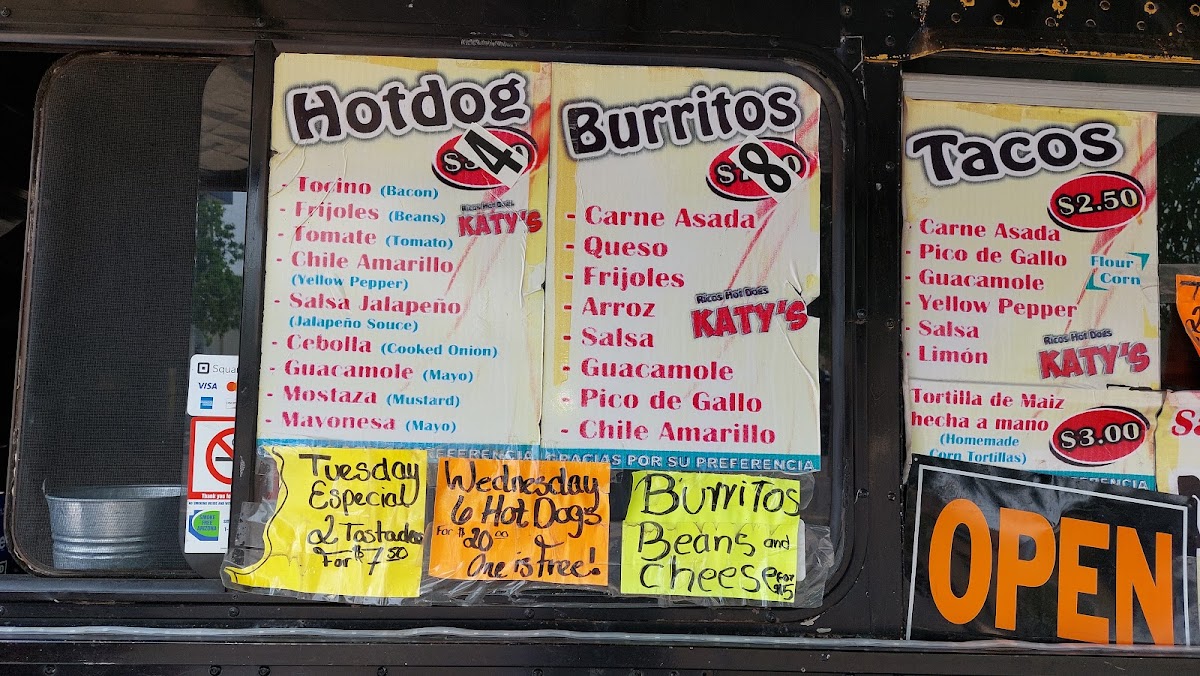 Hotdog
4
- Tocino (Bacon)
- Frijoles (Beans)
- Tomate (Tomato)
- Chile Amarillo
(Yellow Pepper)
- Salsa Jalapeño
(Jalapeño Souce)
- Cebolla (Cooked Onion)
- Guacamole (Mayo)
- Mostaza (Mustard)
- Mayonesa (Mayo)
Ricos Hot Dogs
KATY'S
PREFERENCIA
Burritos
8
- Carne Asada
- Queso
- Frijoles
- Arroz
- Salsa
- Guacamole
- Pico de Gallo
- Chile Amarillo
Ricos Hot Dogs
KATY'S
GRACIAS POR SU PREFERENCIA
Tacos
$2.50
- Carne Asada
- Pico de Gallo
- Guacamole
- Yellow Pepper
- Salsa
- Limón
Flour
Corn
Ricos Hot Dogs
KATY'S
Tortilla de Maiz
hecha a mano
(Homemade
Corn Tortillas)
$3.00
VISA
Thank you
SMOKE
FREE
ARIZONA
Tuesday
Especial
2 Tostadas
For $7.50
Wednesday
6 Hot Dogs
For $20.00
One is Free!
Burritos
Beans and
cheese
OPEN